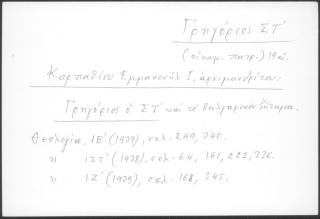 Γρηγόριος ΣΤ΄
(οἰκουμ. πατρ.) 19αι.
Καρπαθίου Ἐμμανουήλ Ι, ἀρχιμανδρίτου.
Γρηγόριος ὁ ΣΤ΄ καί τό Βουλγαρικόν ζήτημα.
Θεολογία, ΙΕ΄ (1937), σελ. 249, 340.
» ΙΣΤ΄ (1938), σελ. 64, 161, 222, 336.
» ΙΖ΄ (1939), σελ. 168, 345.